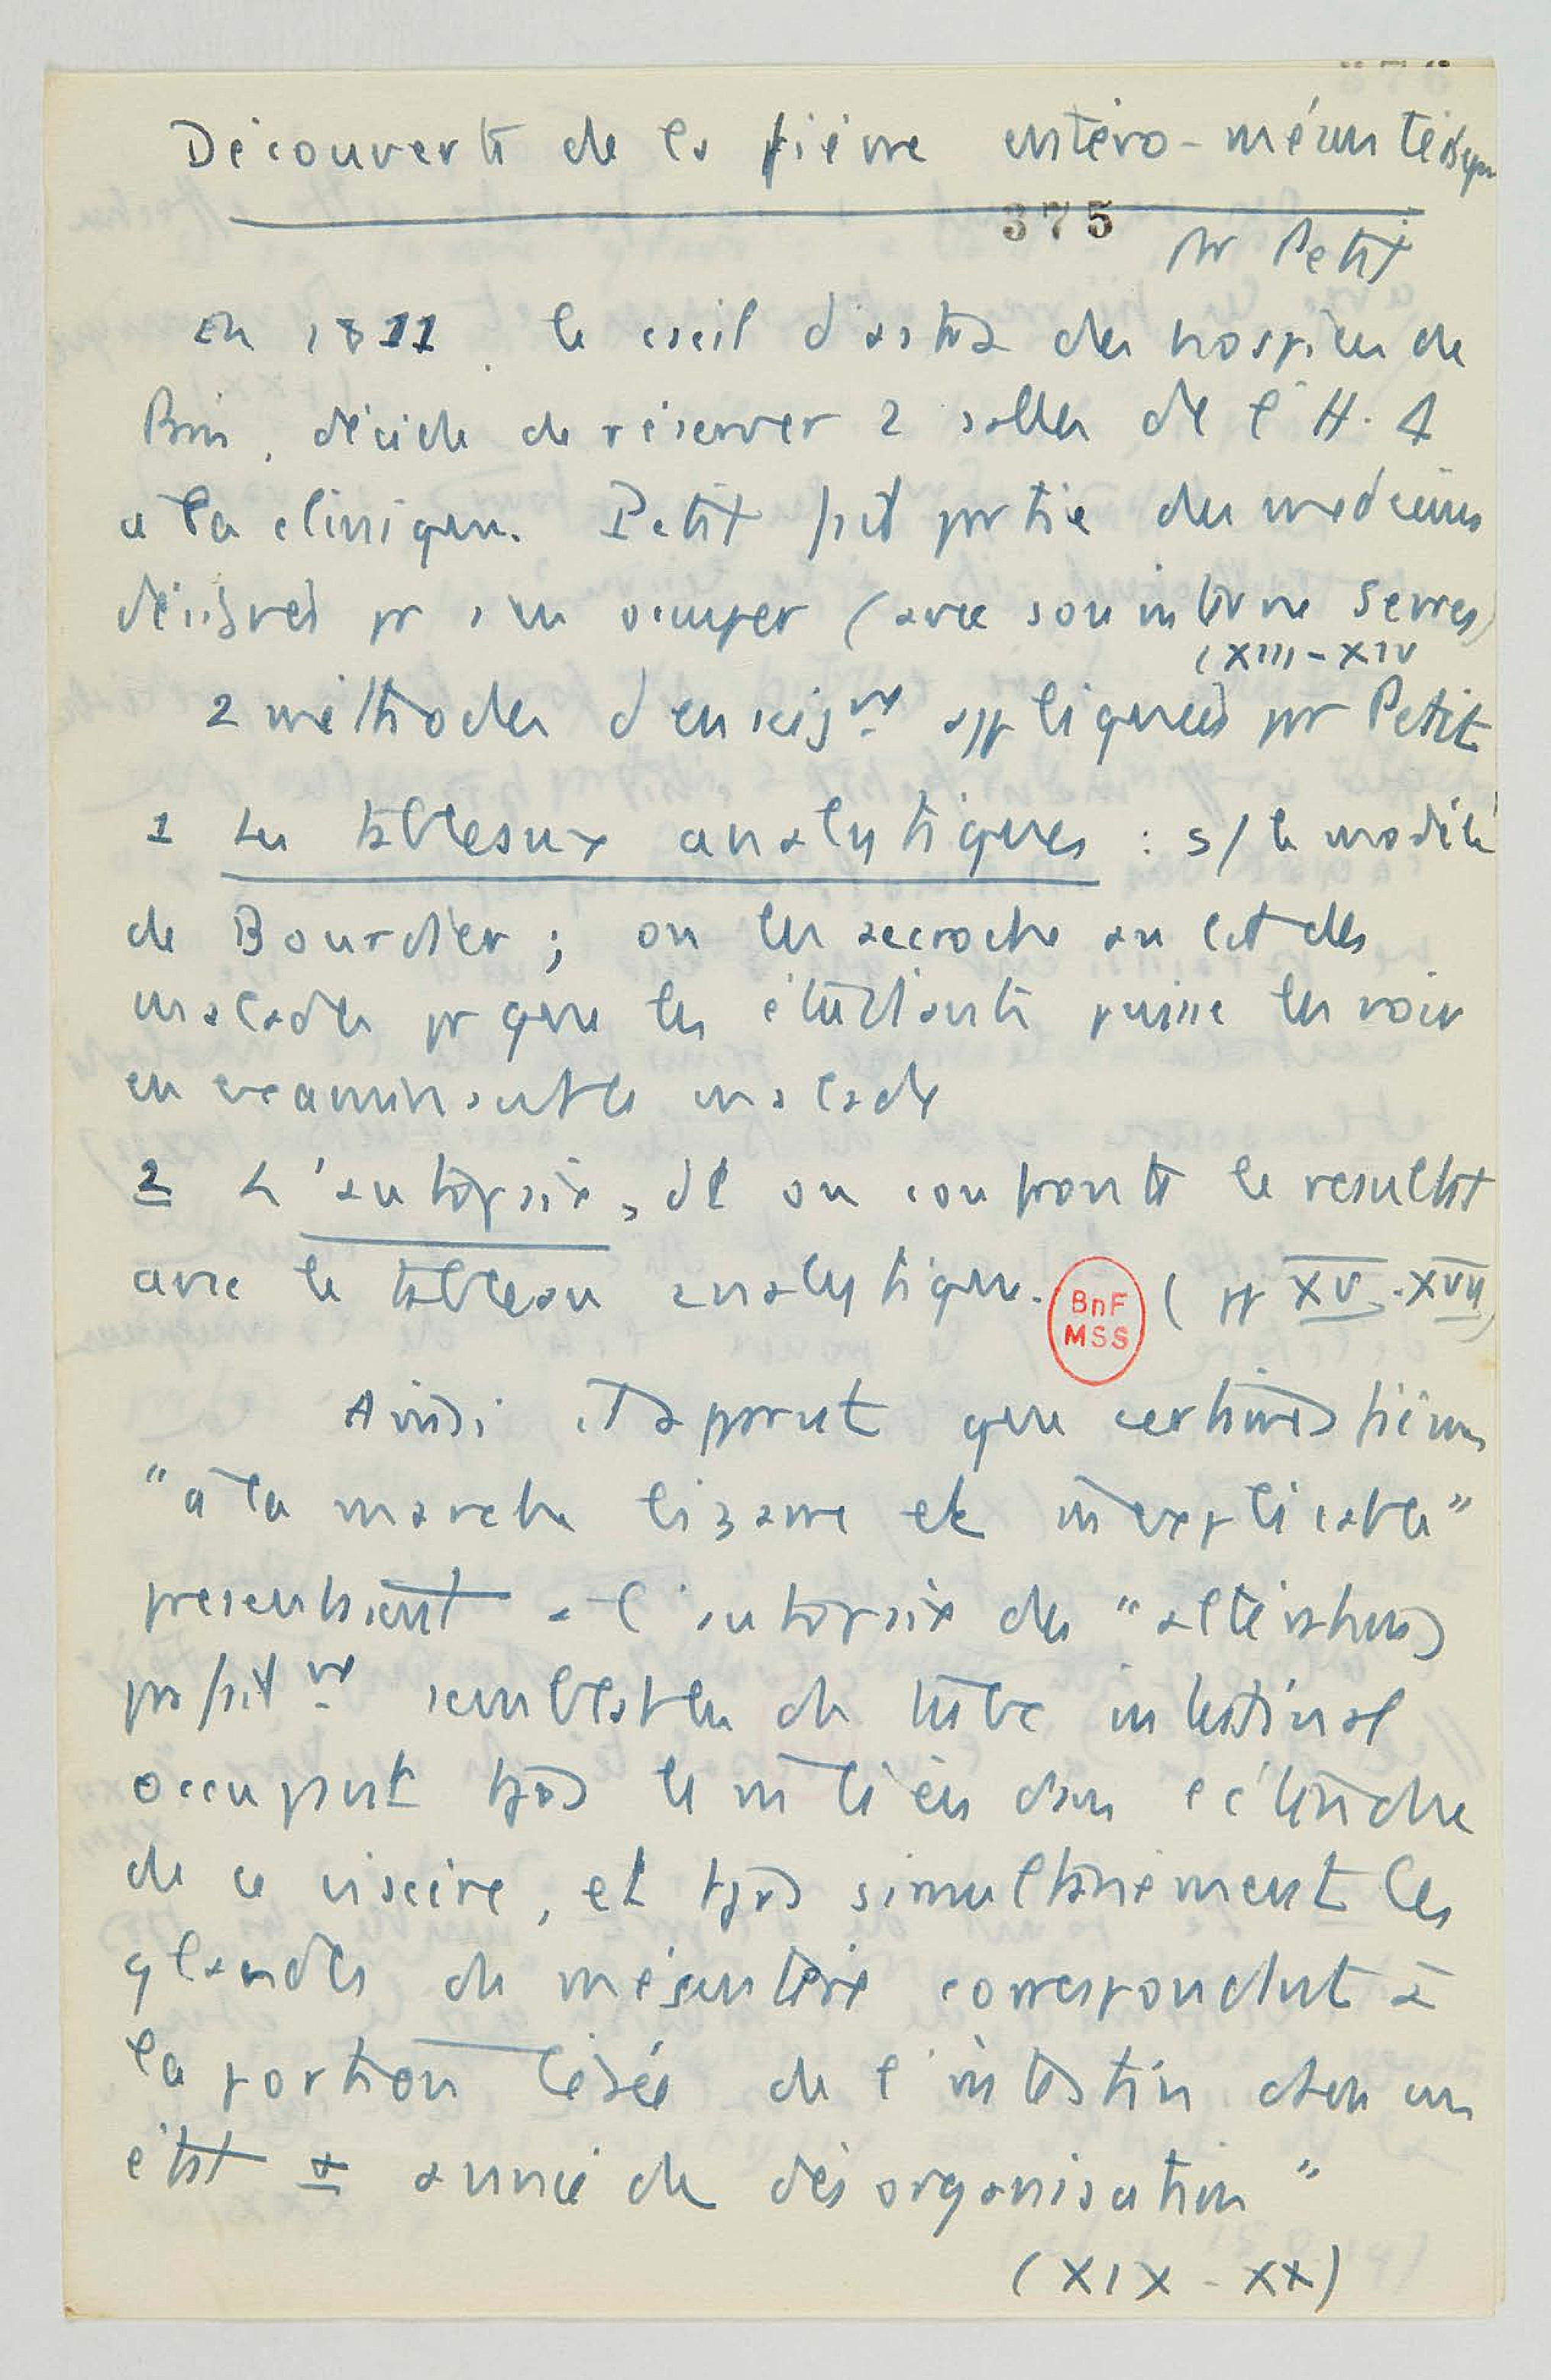 Découverte de la fièvre entéro-mésentérique
375
pr Petit
En 1811, le cseil d'asta des hospices de
Paris, décide de réserver 2 salles de l'H. D
à la clinique. Petit fait partie des médecins
désignés pr s'en occuper (avec son interne Serres)
(XIII-XIV
2 méthodes d'enseigmt appliquées par Petit
1 Les tableaux analytiques : s/ le modèle
de Bourdier ; on les accroche au lit des
malades pr que les étudiants puisse les voir
en examinant le malade
2 L'autopsie, dt on confronte le résultat
avec le tableau analytique. (pp XV-XVII)
BnF
MSS
Ainsi il apparut que certaines fièvres
"à la marche bizarre et inexplicable"
présentaient à l'autopsie des "altérations
parfaitmt semblables du tube intestinal
occupant tjrs le même lieu dans l'étendue
de ce viscère, et tjrs simultanément les
glandes du mésentère correspondant à
la portion lésée de l'intestin dans un
état ± avancé de désorganisation"
(XIX - XX)